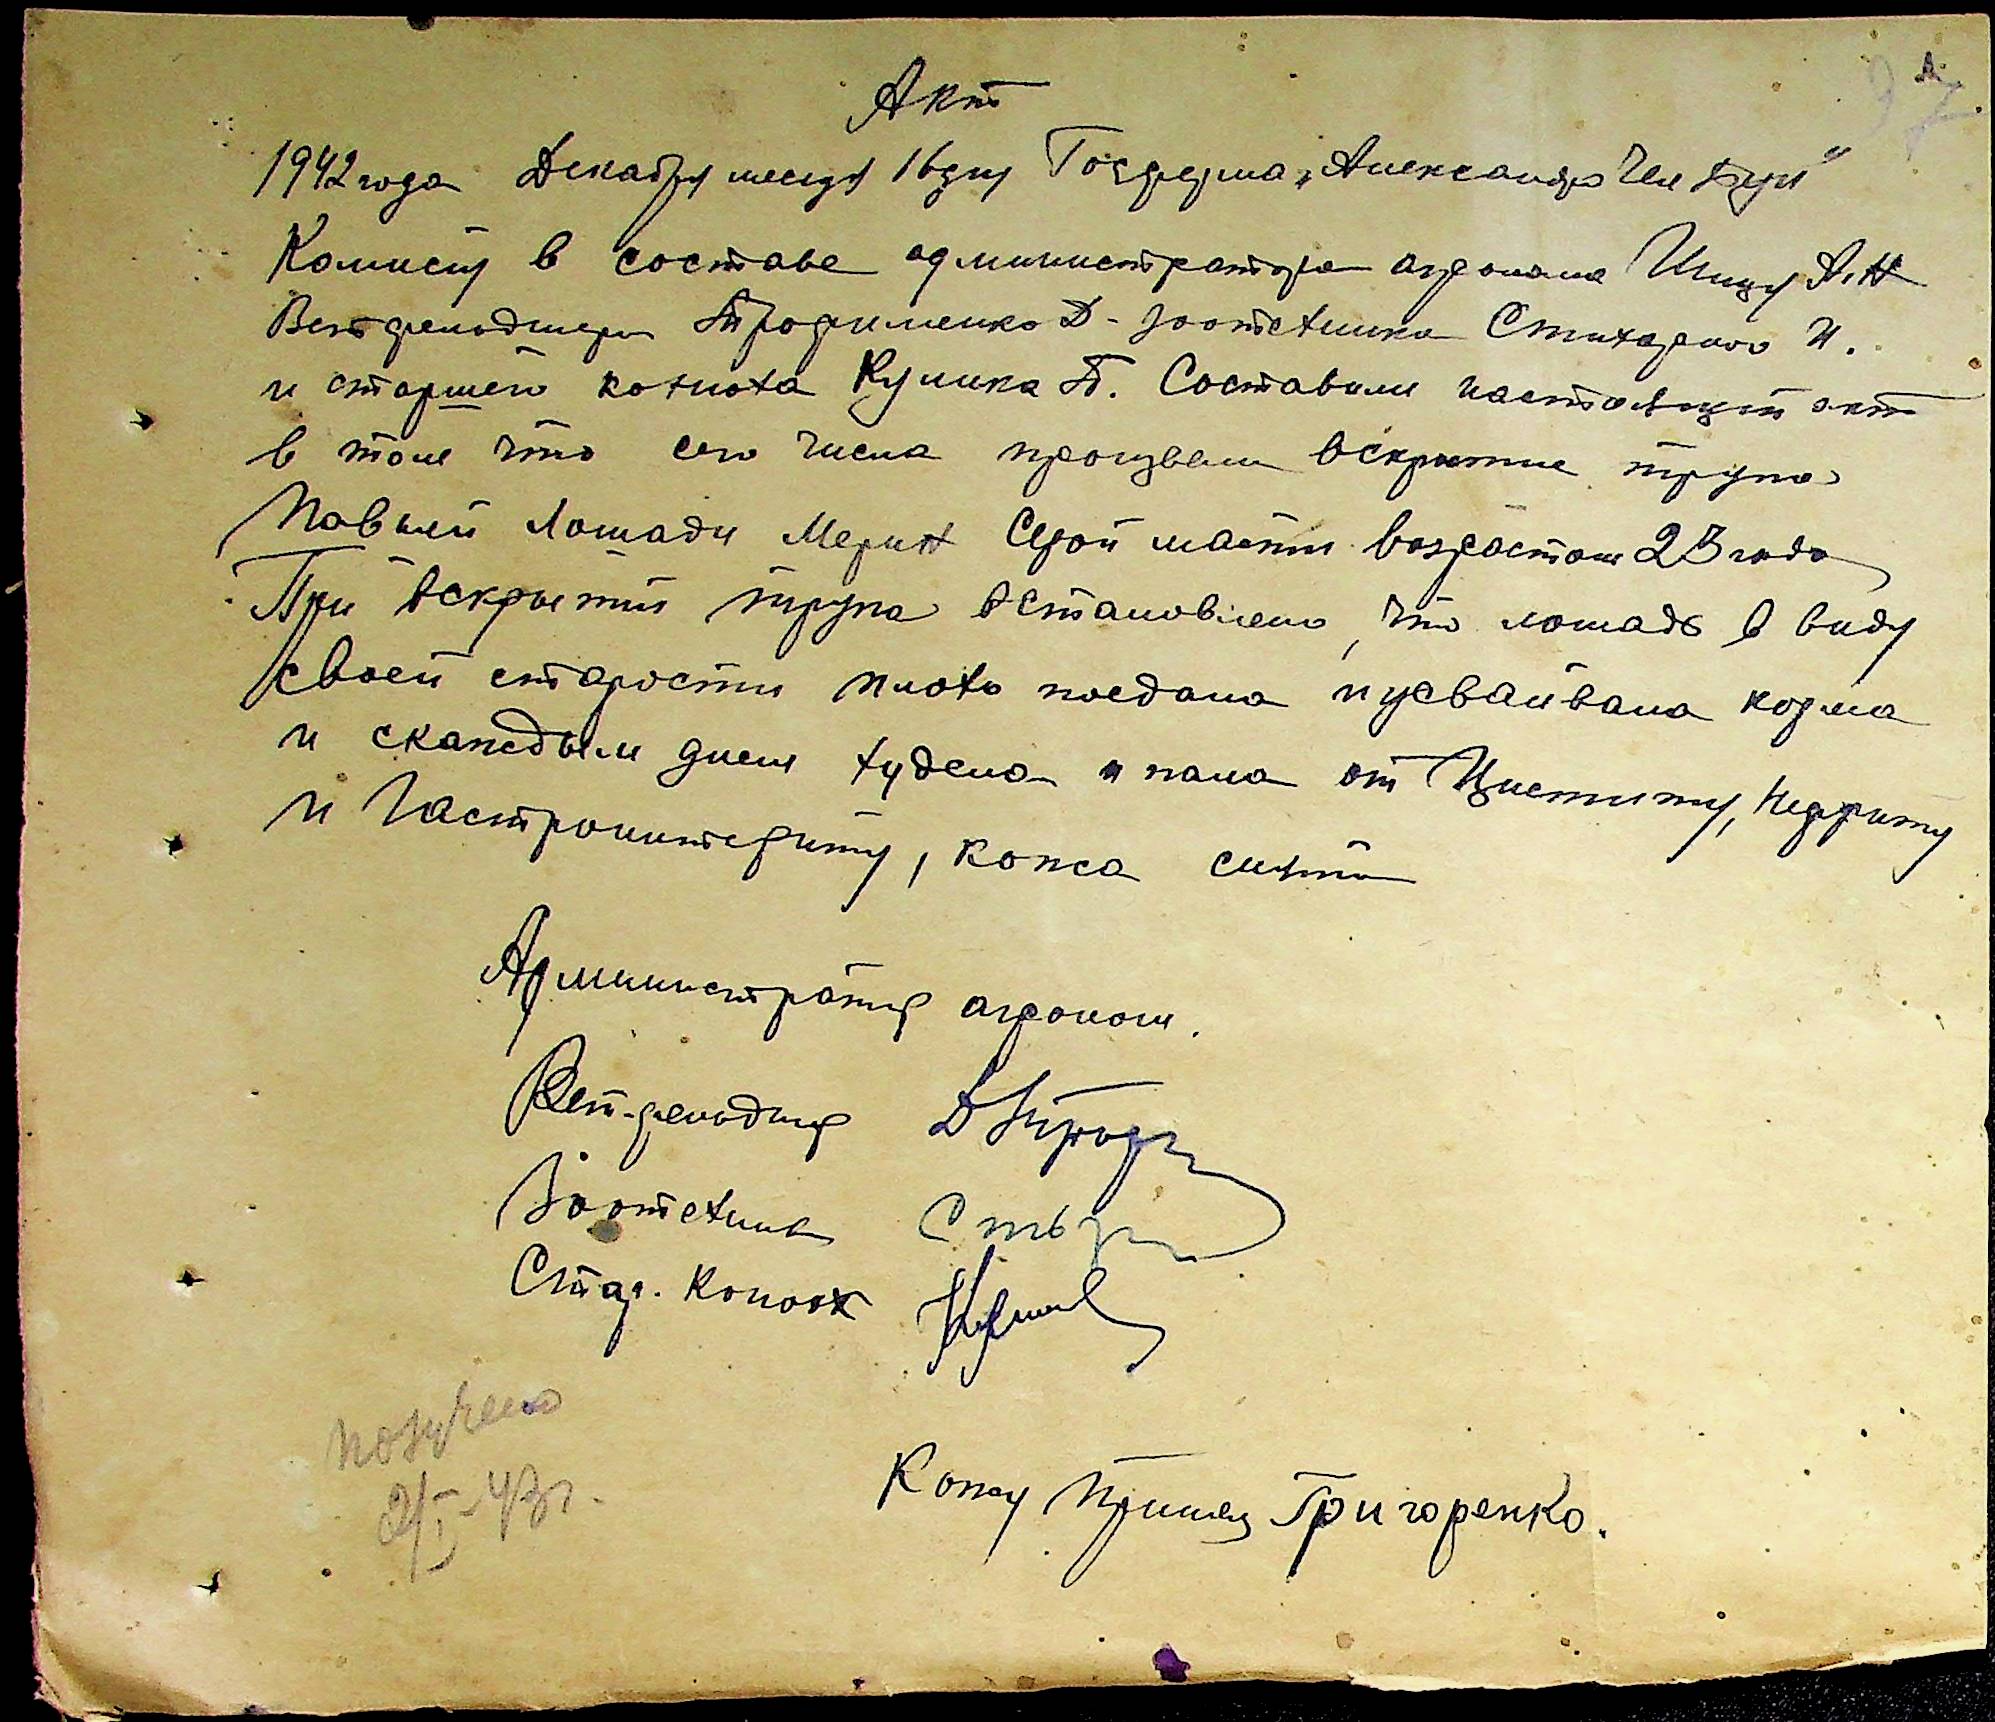 Акт
1942 года Декабря месяця 16 дня Госферма „Александро Чел Бун"
Комисия в составе администратора агронома А.Н
Ветфельдшера Трофименко Д - зоотехника Стихарного И.
и старшего конюха Кулика П. Составили настоящий акт
в том что сего числа произвели вскрытие трупа
Павшей Лошади Мерин Серой масти возрастом 23 года
При вскрытии трупа встановлено, что лошадь в виду
своей старости плохо поедала и усваивала корма
и скаждым днем худела и пала от Циститу, Нефриту
и Гастроинтериту, кожа снята
Администратор агроном.
Вет-фельдшер Д Троф
Зоотехник
Стар. Конюх Кулик
получено
2/I-43г.
Кожу Принял Григоренко.